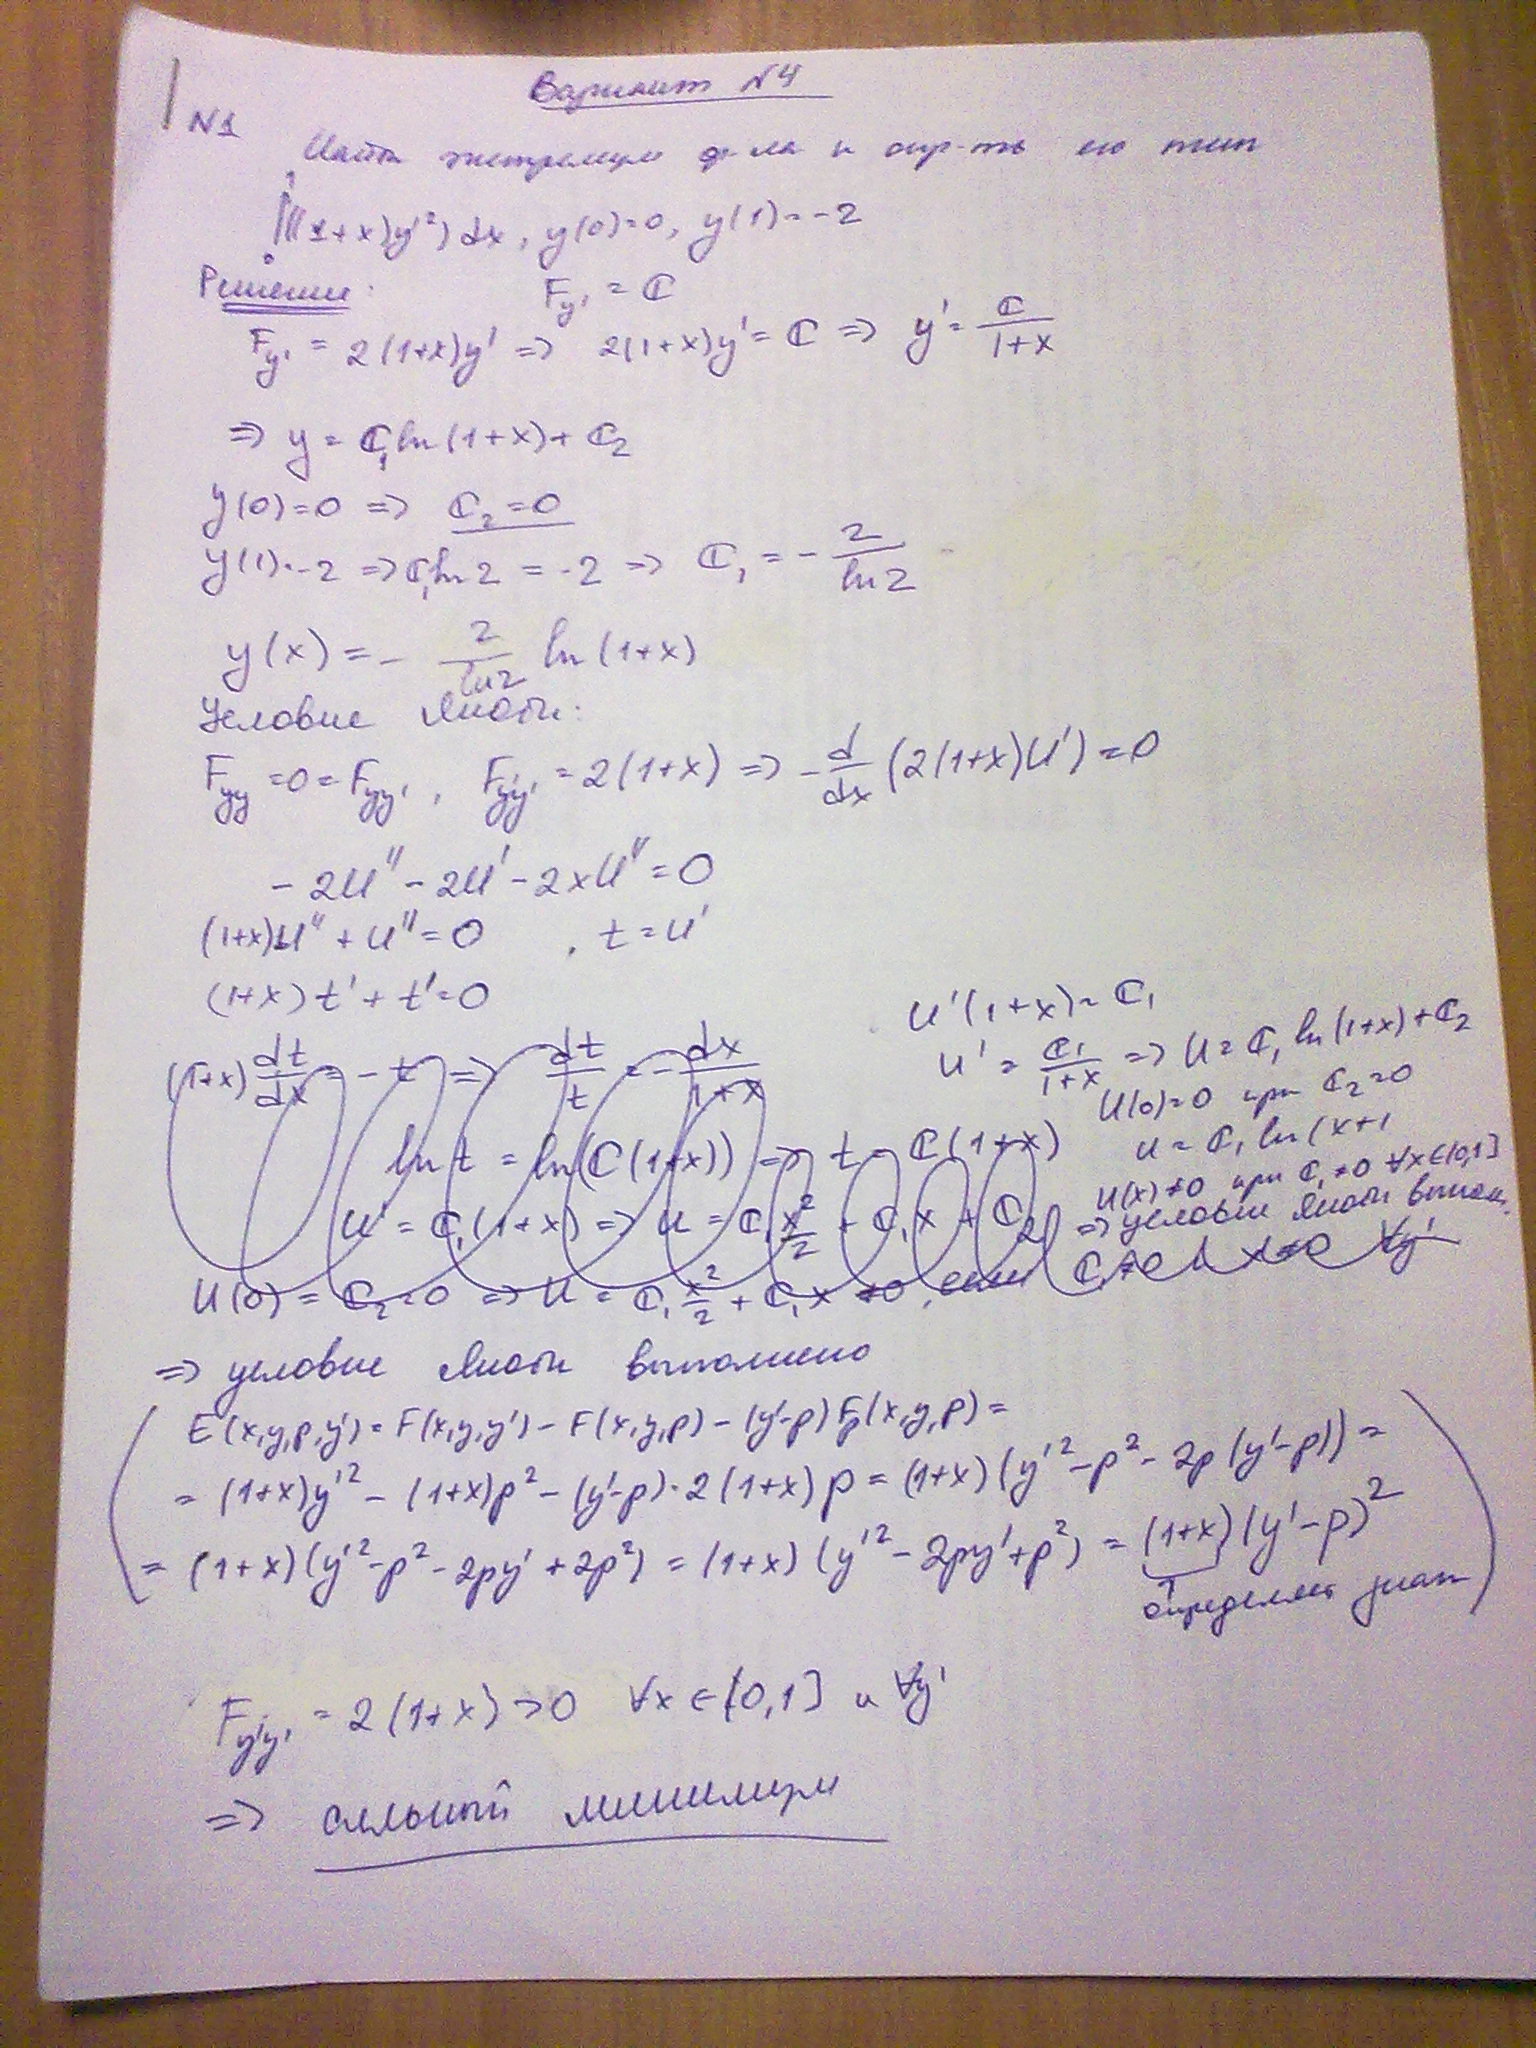 Вариант №4
№1
Найти экстремум ф-ла и опр-ть его тип
∫₀¹ ((1+x)y'²) dx, y(0)=0, y(1)=-2
Решение: F_y' = C
F_y' = 2(1+x)y' => 2(1+x)y' = C => y' = C/(1+x)
=> y = C₁ln(1+x)+C₂
y(0)=0 => C₂=0
y(1)=-2 => C₁ln2 = -2 => C₁ = -2/ln2
y(x) = - 2/ln2 ln(1+x)
Условие Якоби:
F_yy = 0 = F_yy', F_y'y' = 2(1+x) => -d/dx (2(1+x)U') = 0
-2U'' - 2U' - 2xU'' = 0
(1+x)U'' + U'' = 0, t = U'
(1+x)t' + t' = 0
(1+x) dt/dx = -t => dt/t = -dx/(1+x)
ln t = ln(C(1+x)) => t = C(1+x)
U' = C₁(1+x) => U = C₁ x²/2 + C₁x + C₂
U(0) = C₂ = 0 => U = C₁ x²/2 + C₁x ≠ 0, если C₁≠0 и x≠0 ∀y'
U'(1+x) = C₁
U' = C₁/(1+x) => U = C₁ ln(1+x)+C₂
U(0)=0 при C₂=0
U = C₁ ln(x+1
U(x)≠0 при C₁≠0 ∀x∈(0,1]
=> условие Якоби выполн.
=> условие Якоби выполнено
E(x,y,p,y') = F(x,y,y') - F(x,y,p) - (y'-p)F_p(x,y,p) =
= (1+x)y'² - (1+x)p² - (y'-p)·2(1+x)p = (1+x)(y'²-p²-2p(y'-p)) =
= (1+x)(y'²-p²-2py'+2p²) = (1+x)(y'²-2py'+p²) = (1+x)(y'-p)²
определяет знак
F_y'y' = 2(1+x) > 0 ∀x∈[0,1] и ∀y'
=> сильный минимум